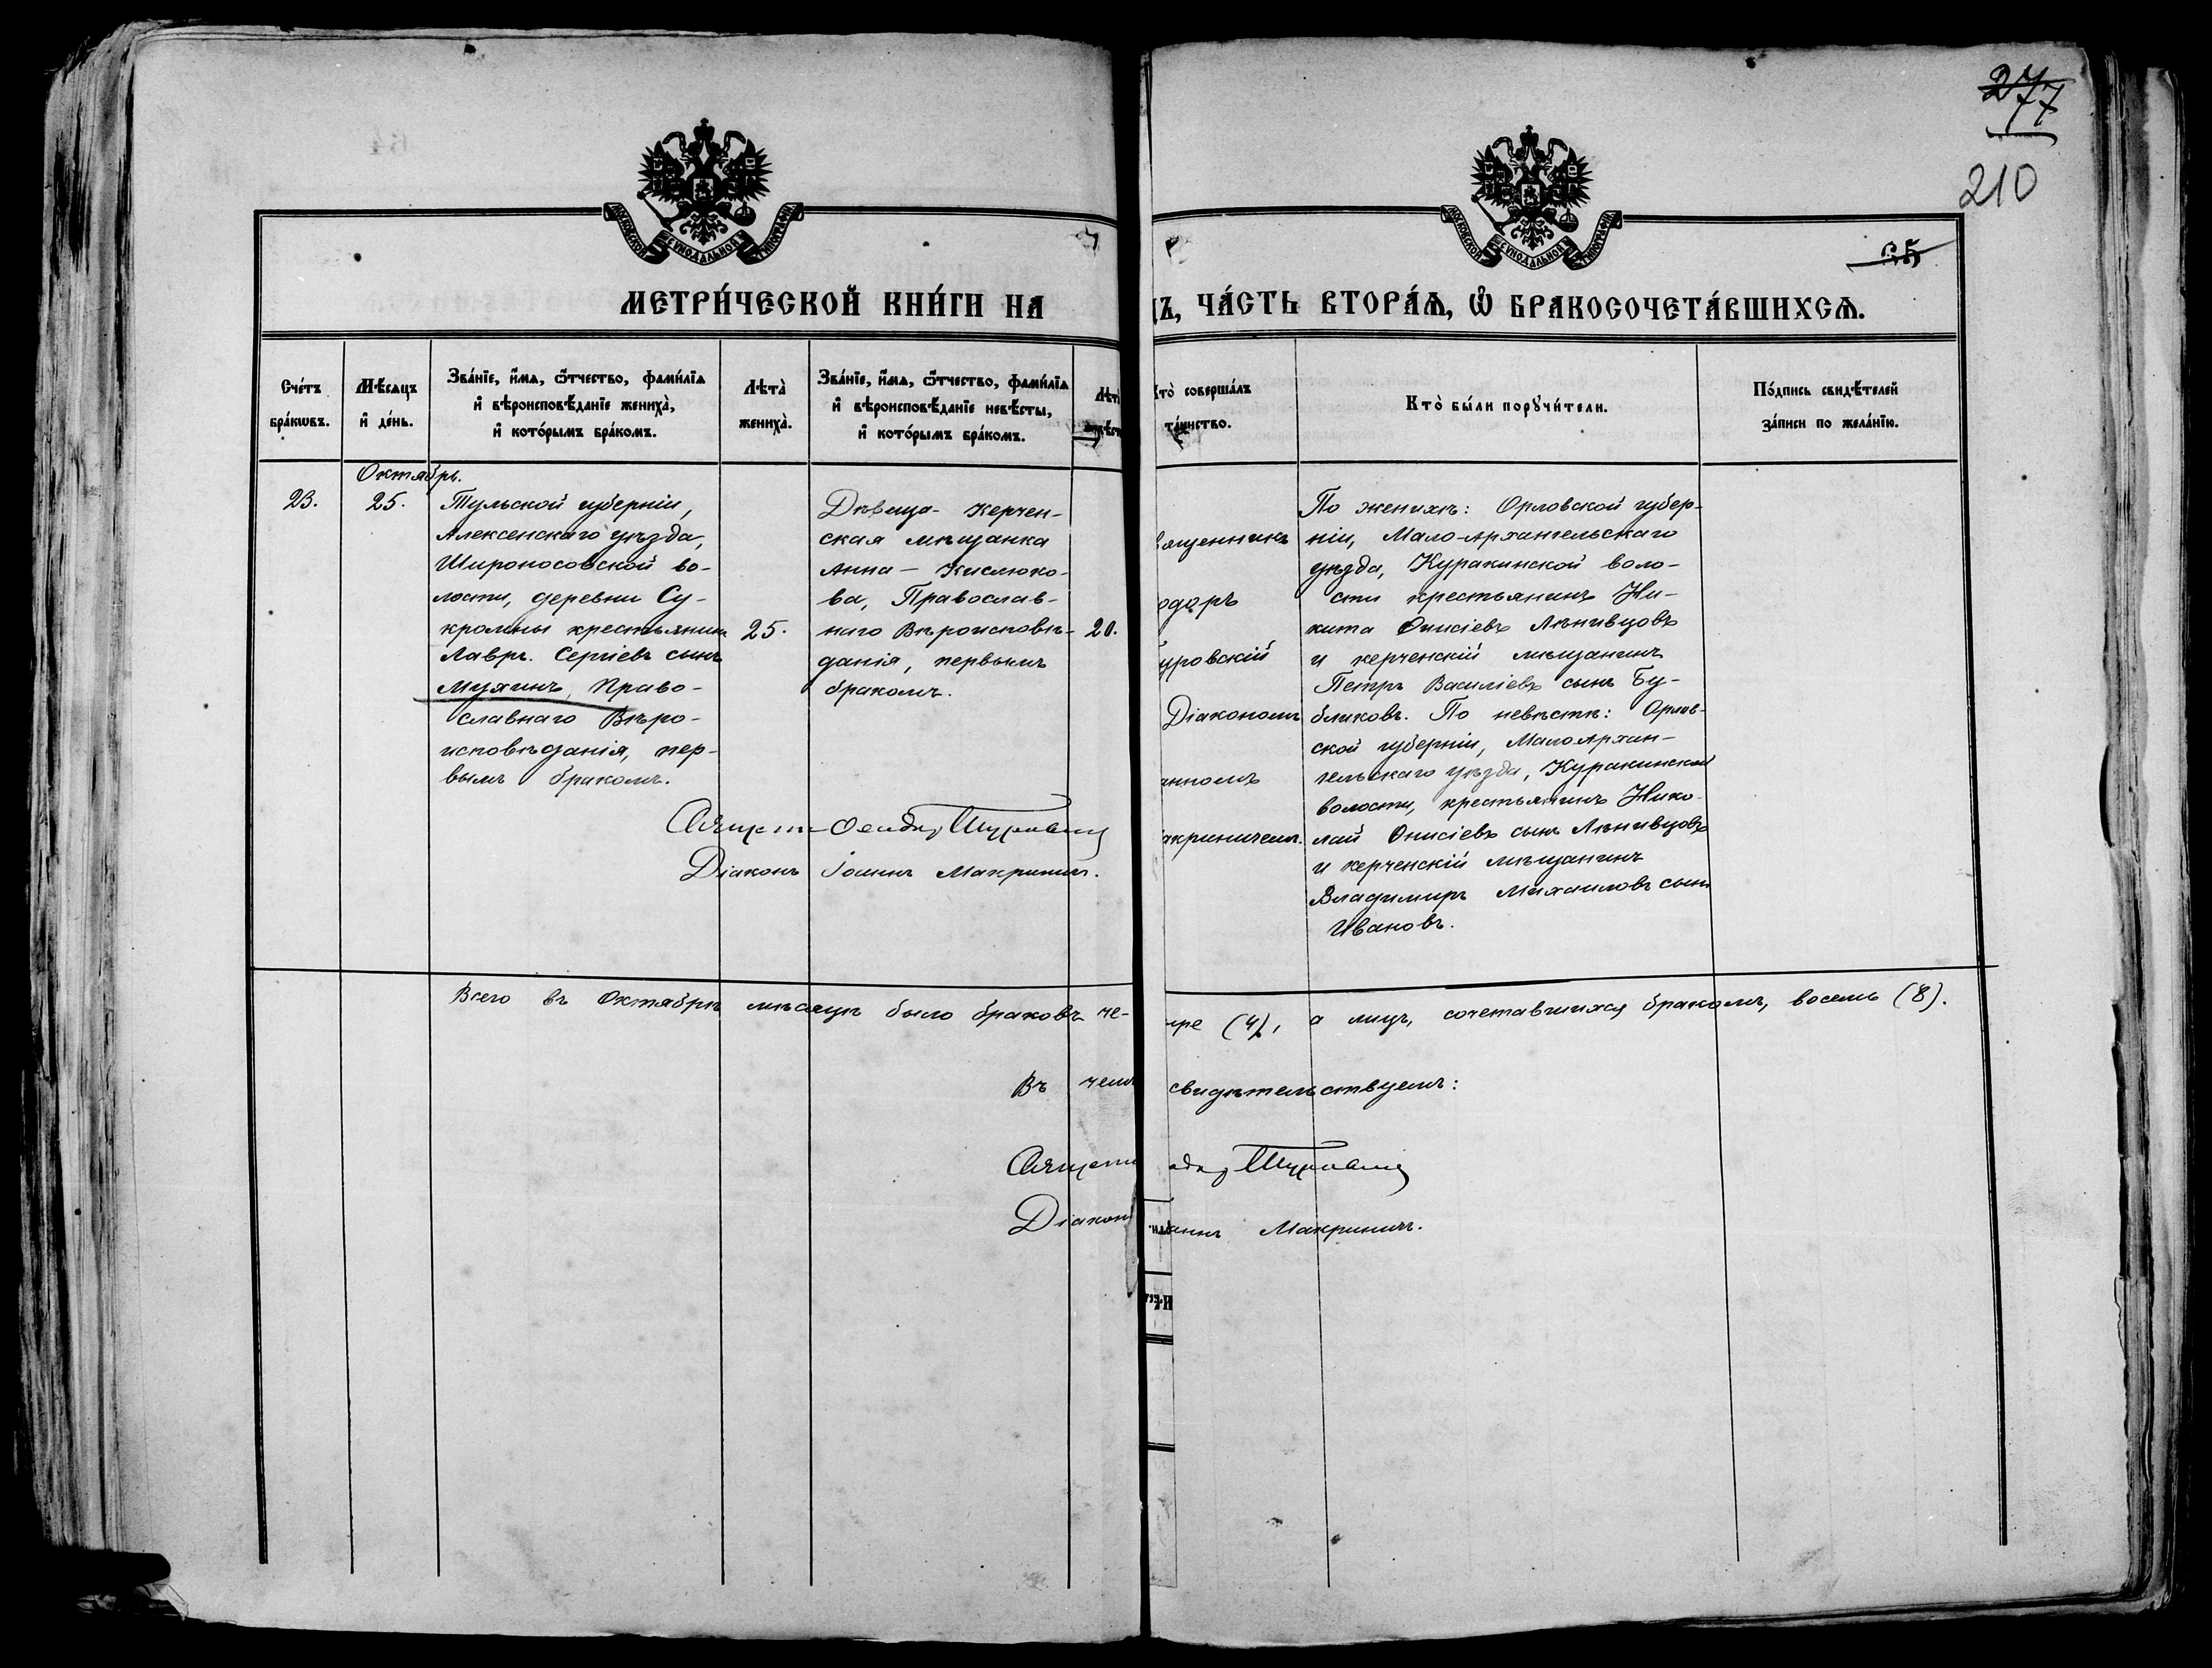 277
210
65
МОСКОВСКОЙ СѴНОДАЛЬНОЙ ТИПОГРАФІИ
МОСКОВСКОЙ СѴНОДАЛЬНОЙ ТИПОГРАФІИ
МЕТРИ́ЧЕСКОЙ КНИ́ГИ НА
Ъ, ЧА́СТЬ ВТОРА́Ѧ, Ѽ БРАКОСОЧЕТА́ВШИХСѦ.
Сче́тъ
бра́кѡвъ.
Мѣ́сѧцъ
и҆ де́нь.
Зва́нїе, и҆́мѧ, ѻ҆́тчество, фамѝлїѧ
и҆ вѣроисповѣ́данїе жениха̀,
и҆ кото́рымъ бра́комъ.
Лѣта̀
жениха̀.
Зва́нїе, и҆́мѧ, ѻ҆́тчество, фамѝлїѧ
и҆ вѣроисповѣ́данїе невѣ́сты,
и҆ кото́рымъ бра́комъ.
Лѣт
то̀ соверша́лъ
та́инство.
Кто̀ бы́ли порꙋчи́тели.
По́дпись свидѣ́телей
за́писи по жела́нїю.
Октябрь.
23.
25.
Тульской губерніи,
Алексенскаго уѣзда,
Широносовской во-
лости, деревни Су-
кромны крестьянинъ
Лавръ Сергіевъ сынъ
Мухинъ, Право-
славнаго Вѣро-
исповѣданія, пер-
вымъ бракомъ.
25.
Дѣвица - Керчен-
ская мѣщанка
Анна — Кислюко-
ва, Православ-
наго Вѣроисповѣ-
данія, первымъ
бракомъ.
20.
вященникъ
одоръ
уровскій
Діакономъ
анномъ
акриничемъ.
По женихѣ: Орловской губер-
ніи, Мало-Архангельскаго
уѣзда, Куракинской воло-
сти крестьянинъ Ни-
кита Онисіевъ Лѣнивцовъ
и керченскій мѣщанинъ
Петръ Василіевъ сынъ Бу-
бликовъ. По невѣстѣ: Орлов-
ской губерніи, МалоАрхан-
гельскаго уѣзда, Куракинской
волости, крестьянинъ Нико-
лай Онисіевъ сынъ Лѣнивцовъ
и керченскій мѣщанинъ
Владимиръ Михаиловъ сынъ
Ивановъ.
Священ- Ѳеодор Шуровскій
Діаконъ Іоаннъ Макриничъ.
Всего въ Октябрѣ мѣсяцѣ было браковъ че-
тыре (4), а лицъ, сочетавшихся бракомъ, восемь (8).
Въ чемъ свидѣтельствуемъ:
Священ одор Шуровскій
Діакон аннъ Макриничъ.